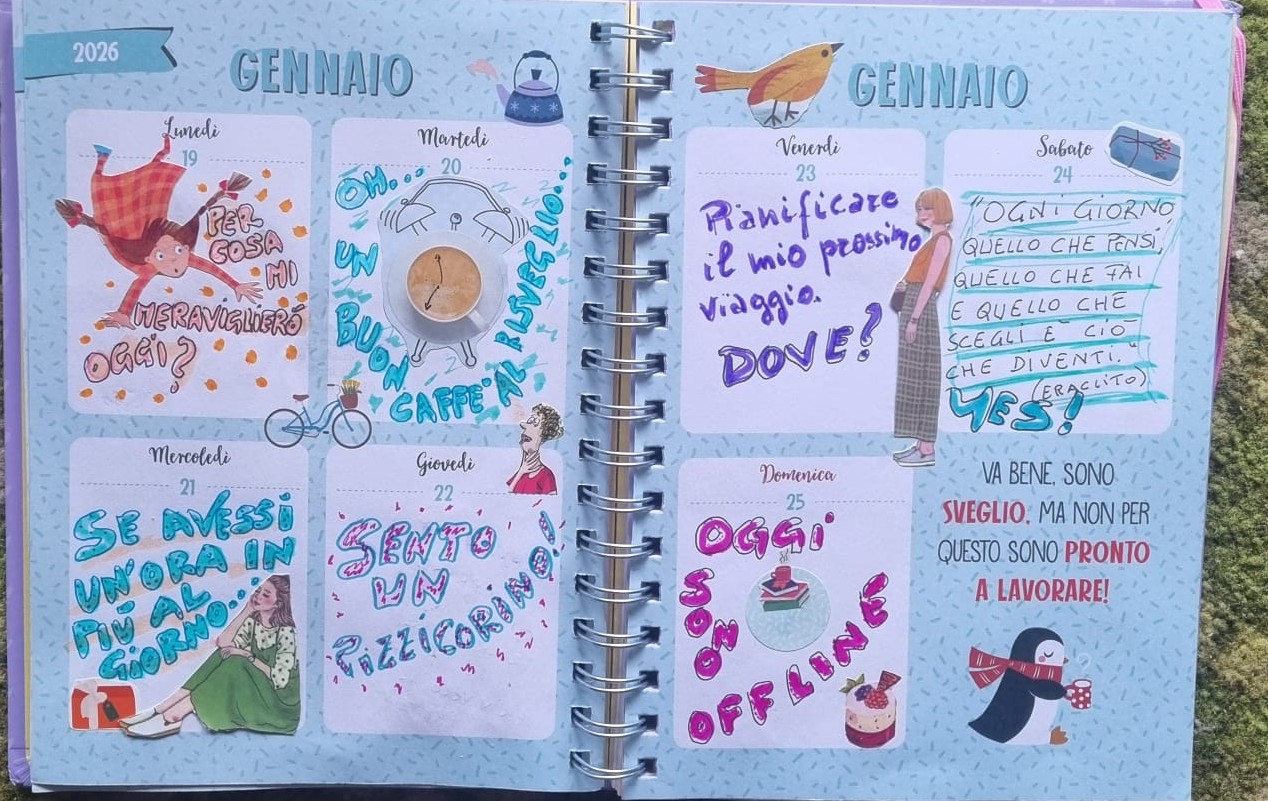 2026
GENNAIO
Lunedì
19
PER
COSA
MI
MERAVIGLIERÒ
OGGI?
Martedì
20
OH...
UN
BUON
CAFFE' AL
RISVEGLIO...
Mercoledì
21
SE AVESSI
UN'ORA IN
PIÚ AL
GIORNO...
Giovedì
22
SENTO
UN
PIZZICORINO!
GENNAIO
Venerdì
23
Pianificare
il mio prossimo
viaggio.
DOVE?
Sabato
24
"OGNI GIORNO,
QUELLO CHE PENSI,
QUELLO CHE FAI
E QUELLO CHE
SCEGLI È CIÒ
CHE DIVENTI."
(ERACLITO)
YES!
Domenica
25
OGGi
SONO
OFFLINE
VA BENE, SONO
SVEGLIO, MA NON PER
QUESTO SONO PRONTO
A LAVORARE!